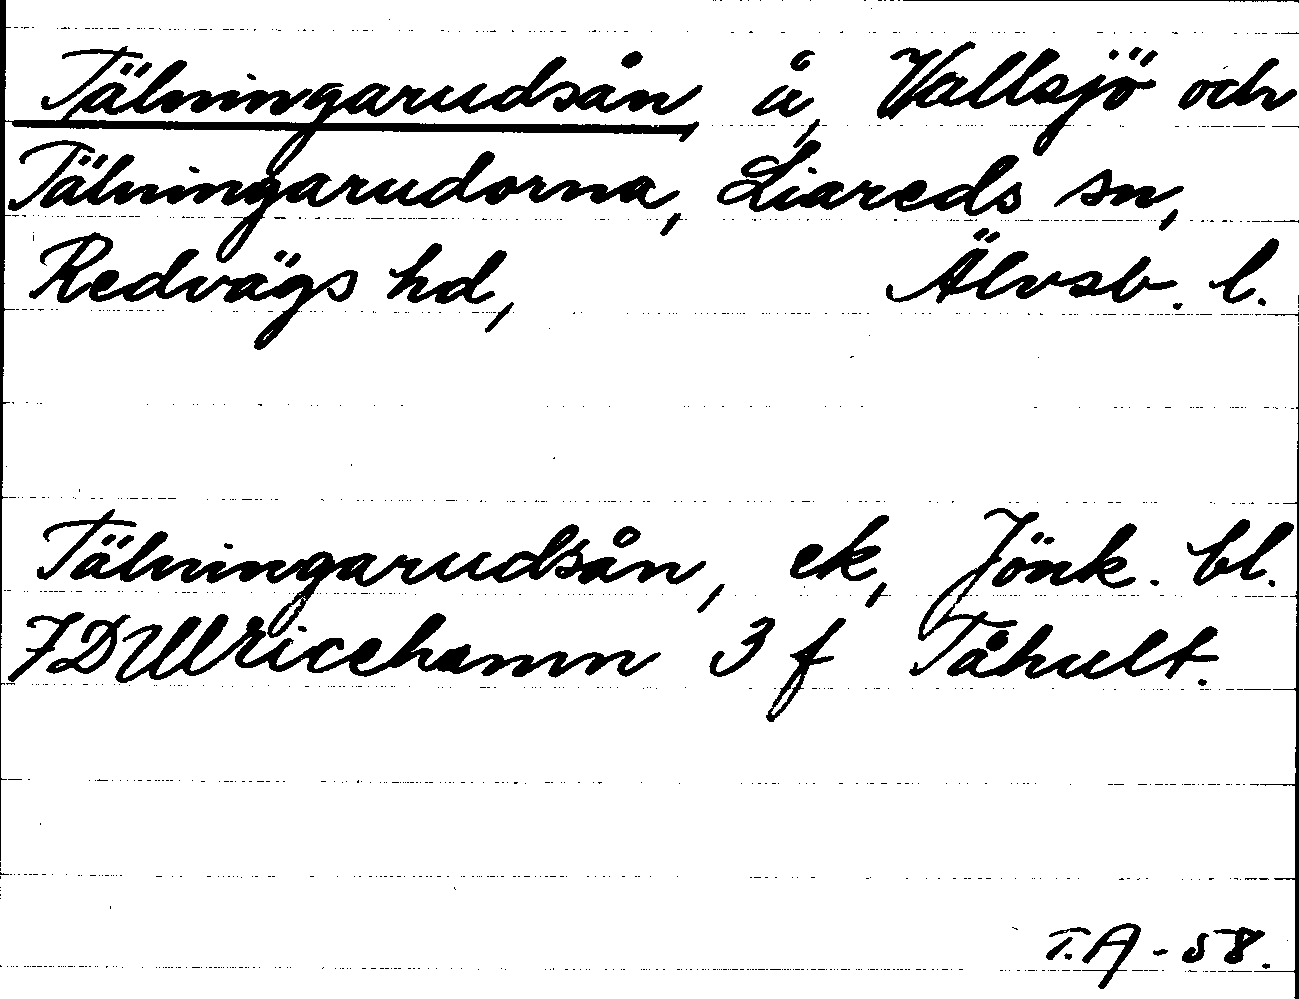 Tälningarudsån å, Vallsjö och
Tälningarudorna, Liareds sn,
Redvägs hd, Älvsb. l.
Tälningarudsån, ek, Jönk. bl.
7D Ulricehamn 3 f Tåhult.
T.A-58.